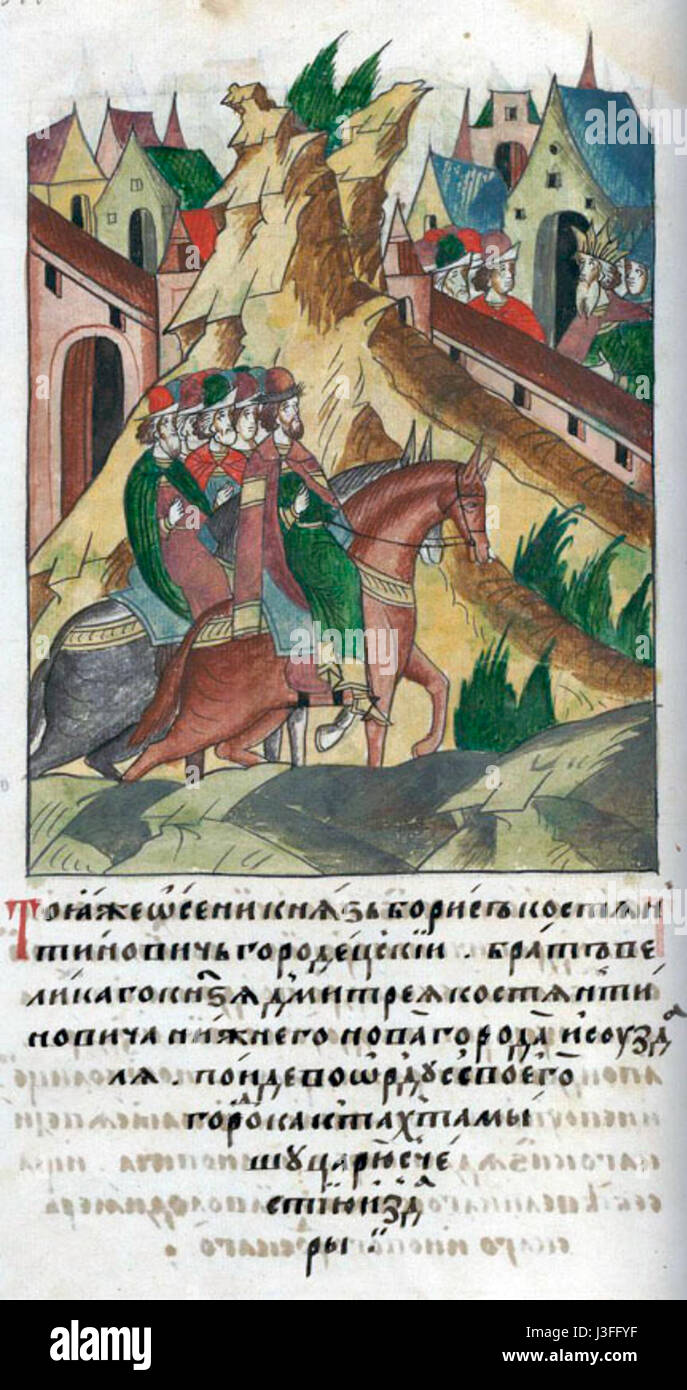 Тоꙗже ѡсени кнѧзь борисъ костѧн
тиновичь городецскїи . братъ ве
ликаго кнѕѧ дмитрея костѧнти
новича нижнего новагорода и соузда
ля . поиде во ѡрдꙋ с своего
городка к тахтамы
шꙋ царю с че
стїю и з да
ры
alamy
Image ID: J3FFYF
www.alamy.com